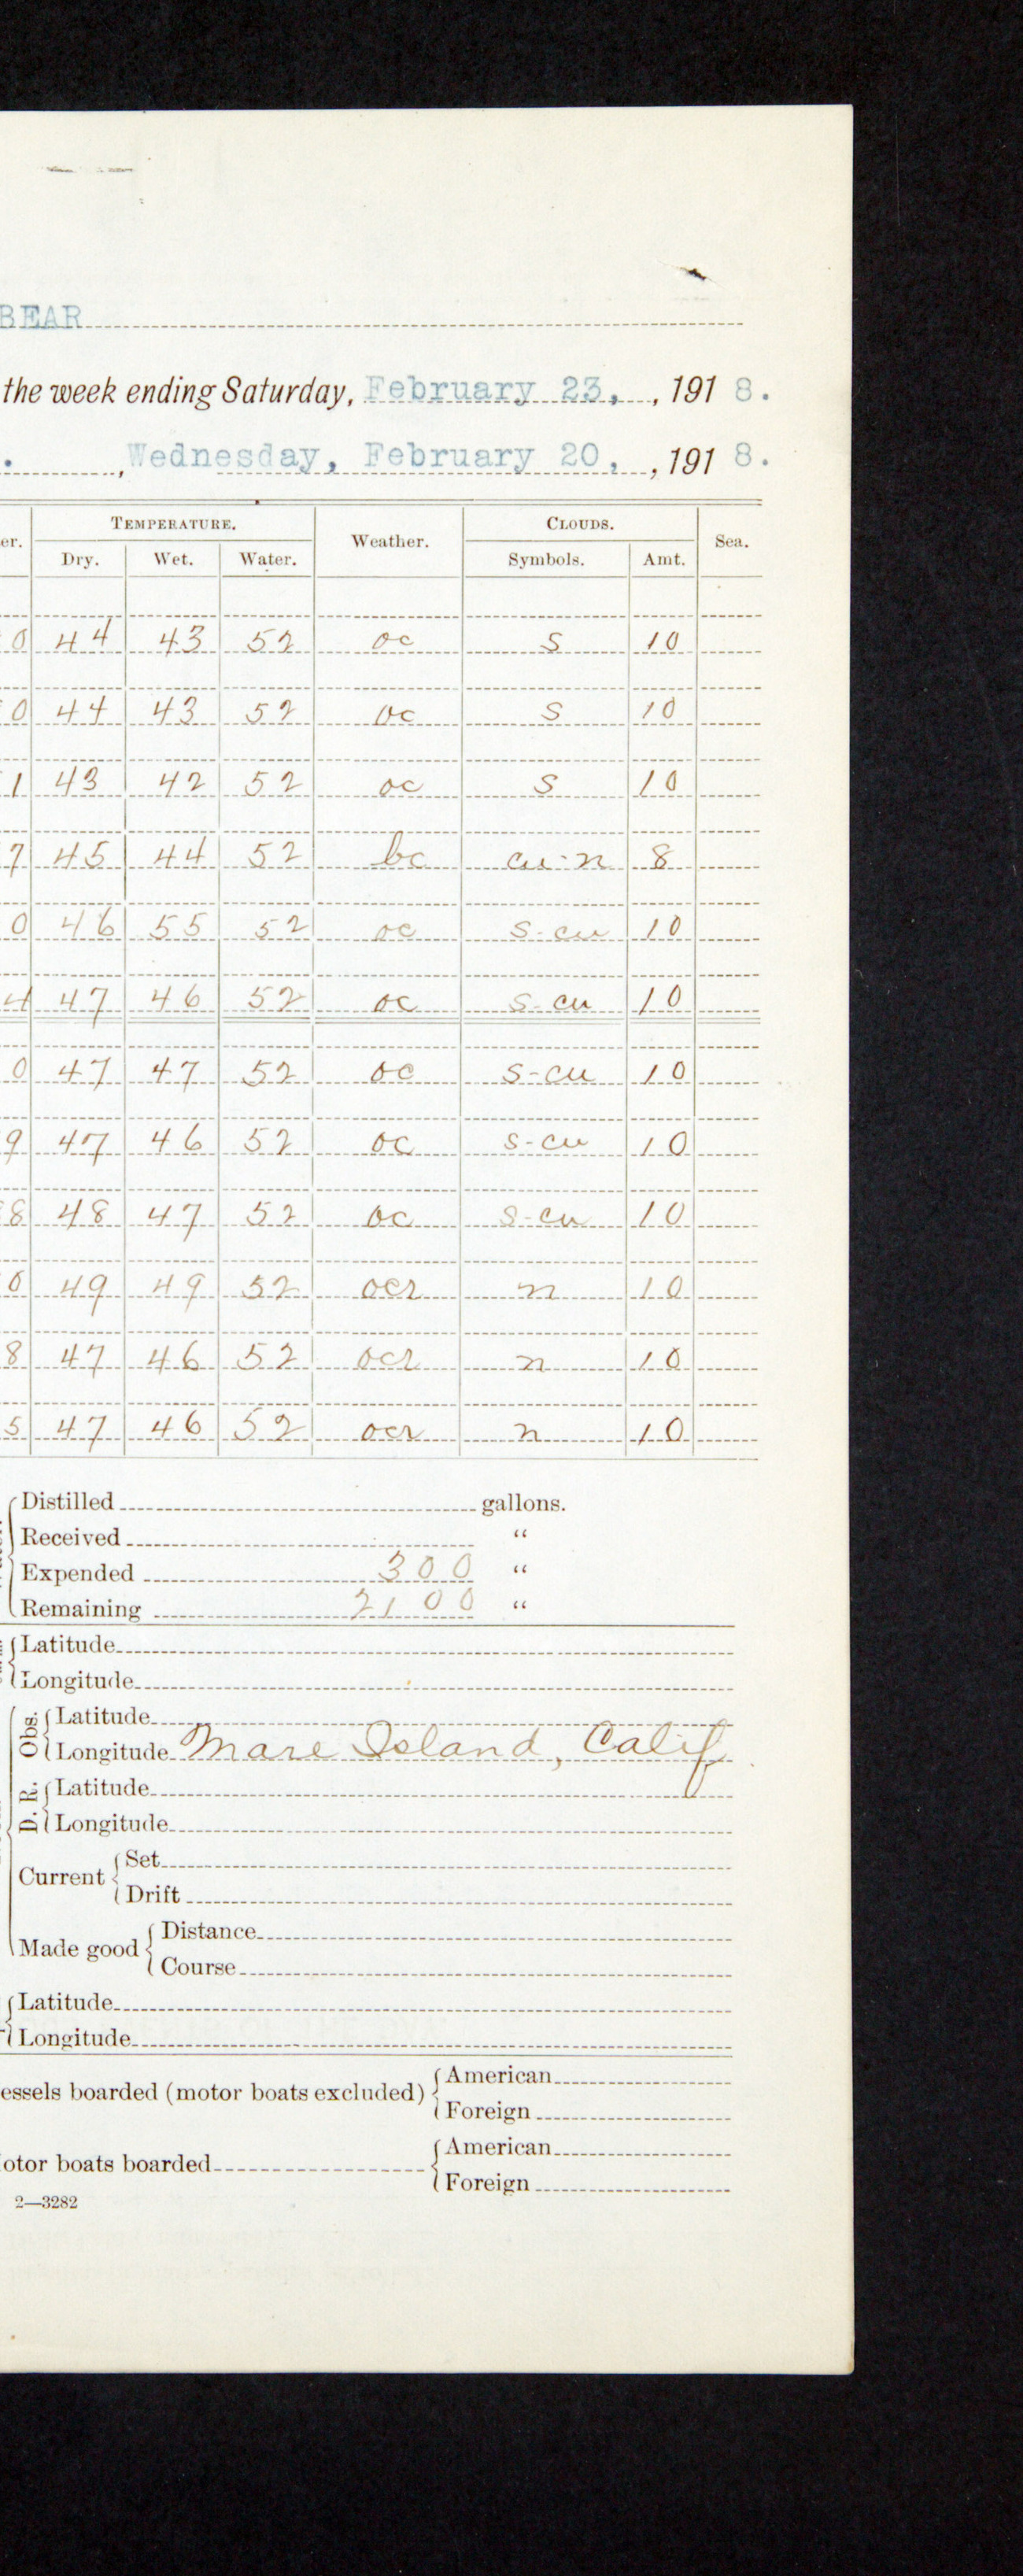 BEAR
the week ending Saturday, February 23, , 191 8.
. , Wednesday, February 20, , 191 8.
er. TEMPERATURE. Weather. CLOUDS. Sea.
Dry. Wet. Water. Symbols. Amt.
0 44 43 52 oc s 10
0 44 43 52 oc s 10
1 43 42 52 oc s 10
7 45 44 52 bc cu-n 8
0 46 55 52 oc s-cu 10
4 47 46 52 oc s-cu 10
0 47 47 52 oc s-cu 10
9 47 46 52 oc s-cu 10
8 48 47 52 oc s-cu 10
0 49 49 52 ocr n 10
8 47 46 52 ocr n 10
5 47 46 52 ocr n 10
Distilled gallons.
Received "
Expended 300 "
Remaining 2100 "
Latitude
Longitude
Obs. Latitude
Longitude Mare Island, Calif
D. R. Latitude
Longitude
Current Set
Drift
Made good Distance
Course
Latitude
Longitude
essels boarded (motor boats excluded) American
Foreign
otor boats boarded American
Foreign
2—3282